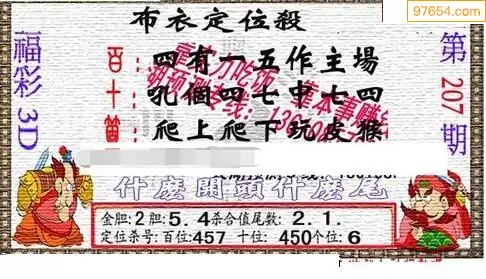 97654.com
布衣定位殺
福彩3D
第207期
百:四有一五作主場
十:吼個四七中七四
笛:爬上爬下玩皮猴
什麽開頭什麽尾
金胆:2胆:5.4杀合值尾数:2.1.
定位杀号:百位:457 十位:450个位:6